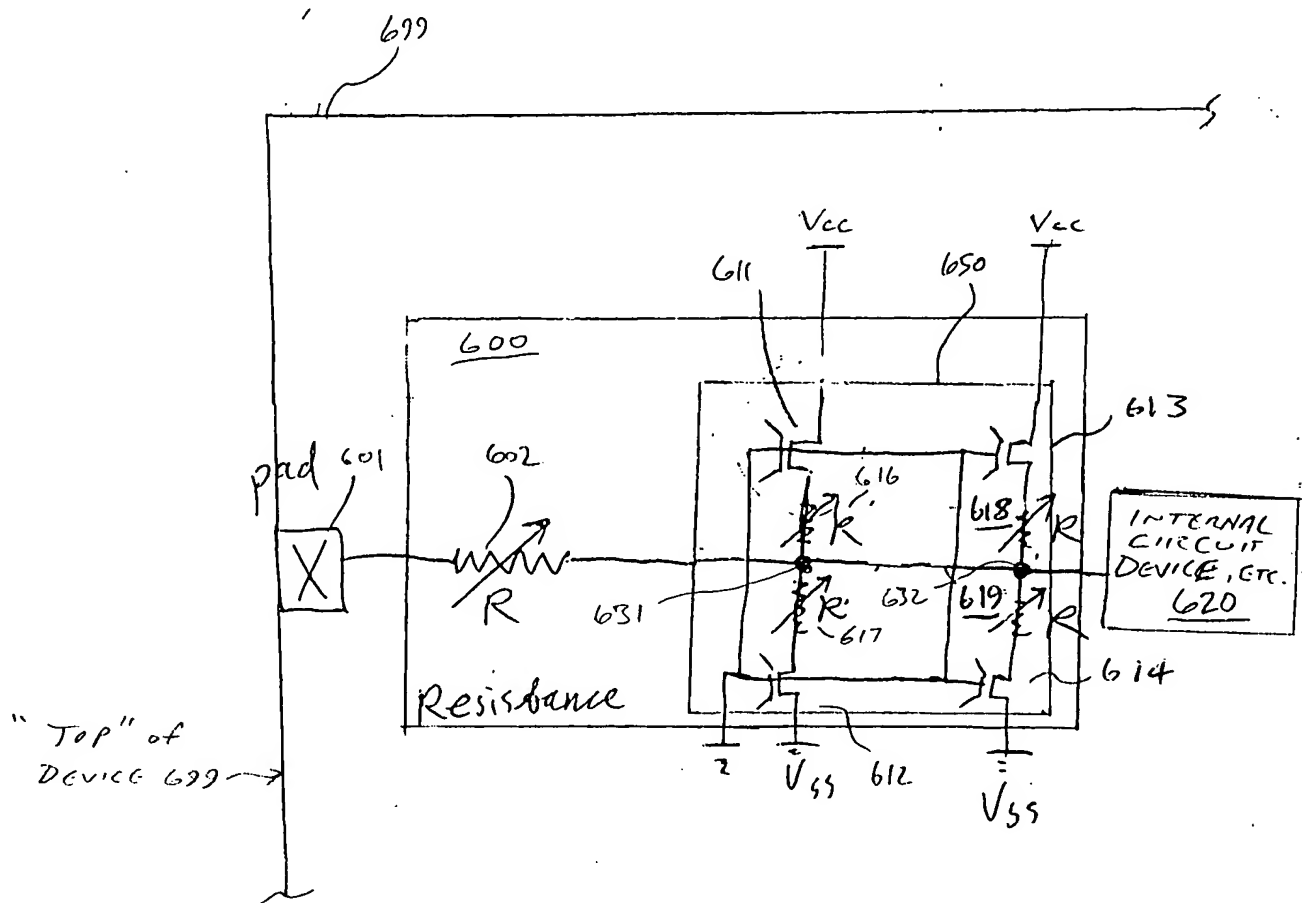 699
Vcc
Vcc
611
650
600
613
pad 601
602
616
R
618
R
INTERNAL
CIRCUIT
DEVICE, ETC.
620
X
R
631
R
617
632
619
R
614
Resistance
"TOP" of
DEVICE 699
612
Vss
Vss